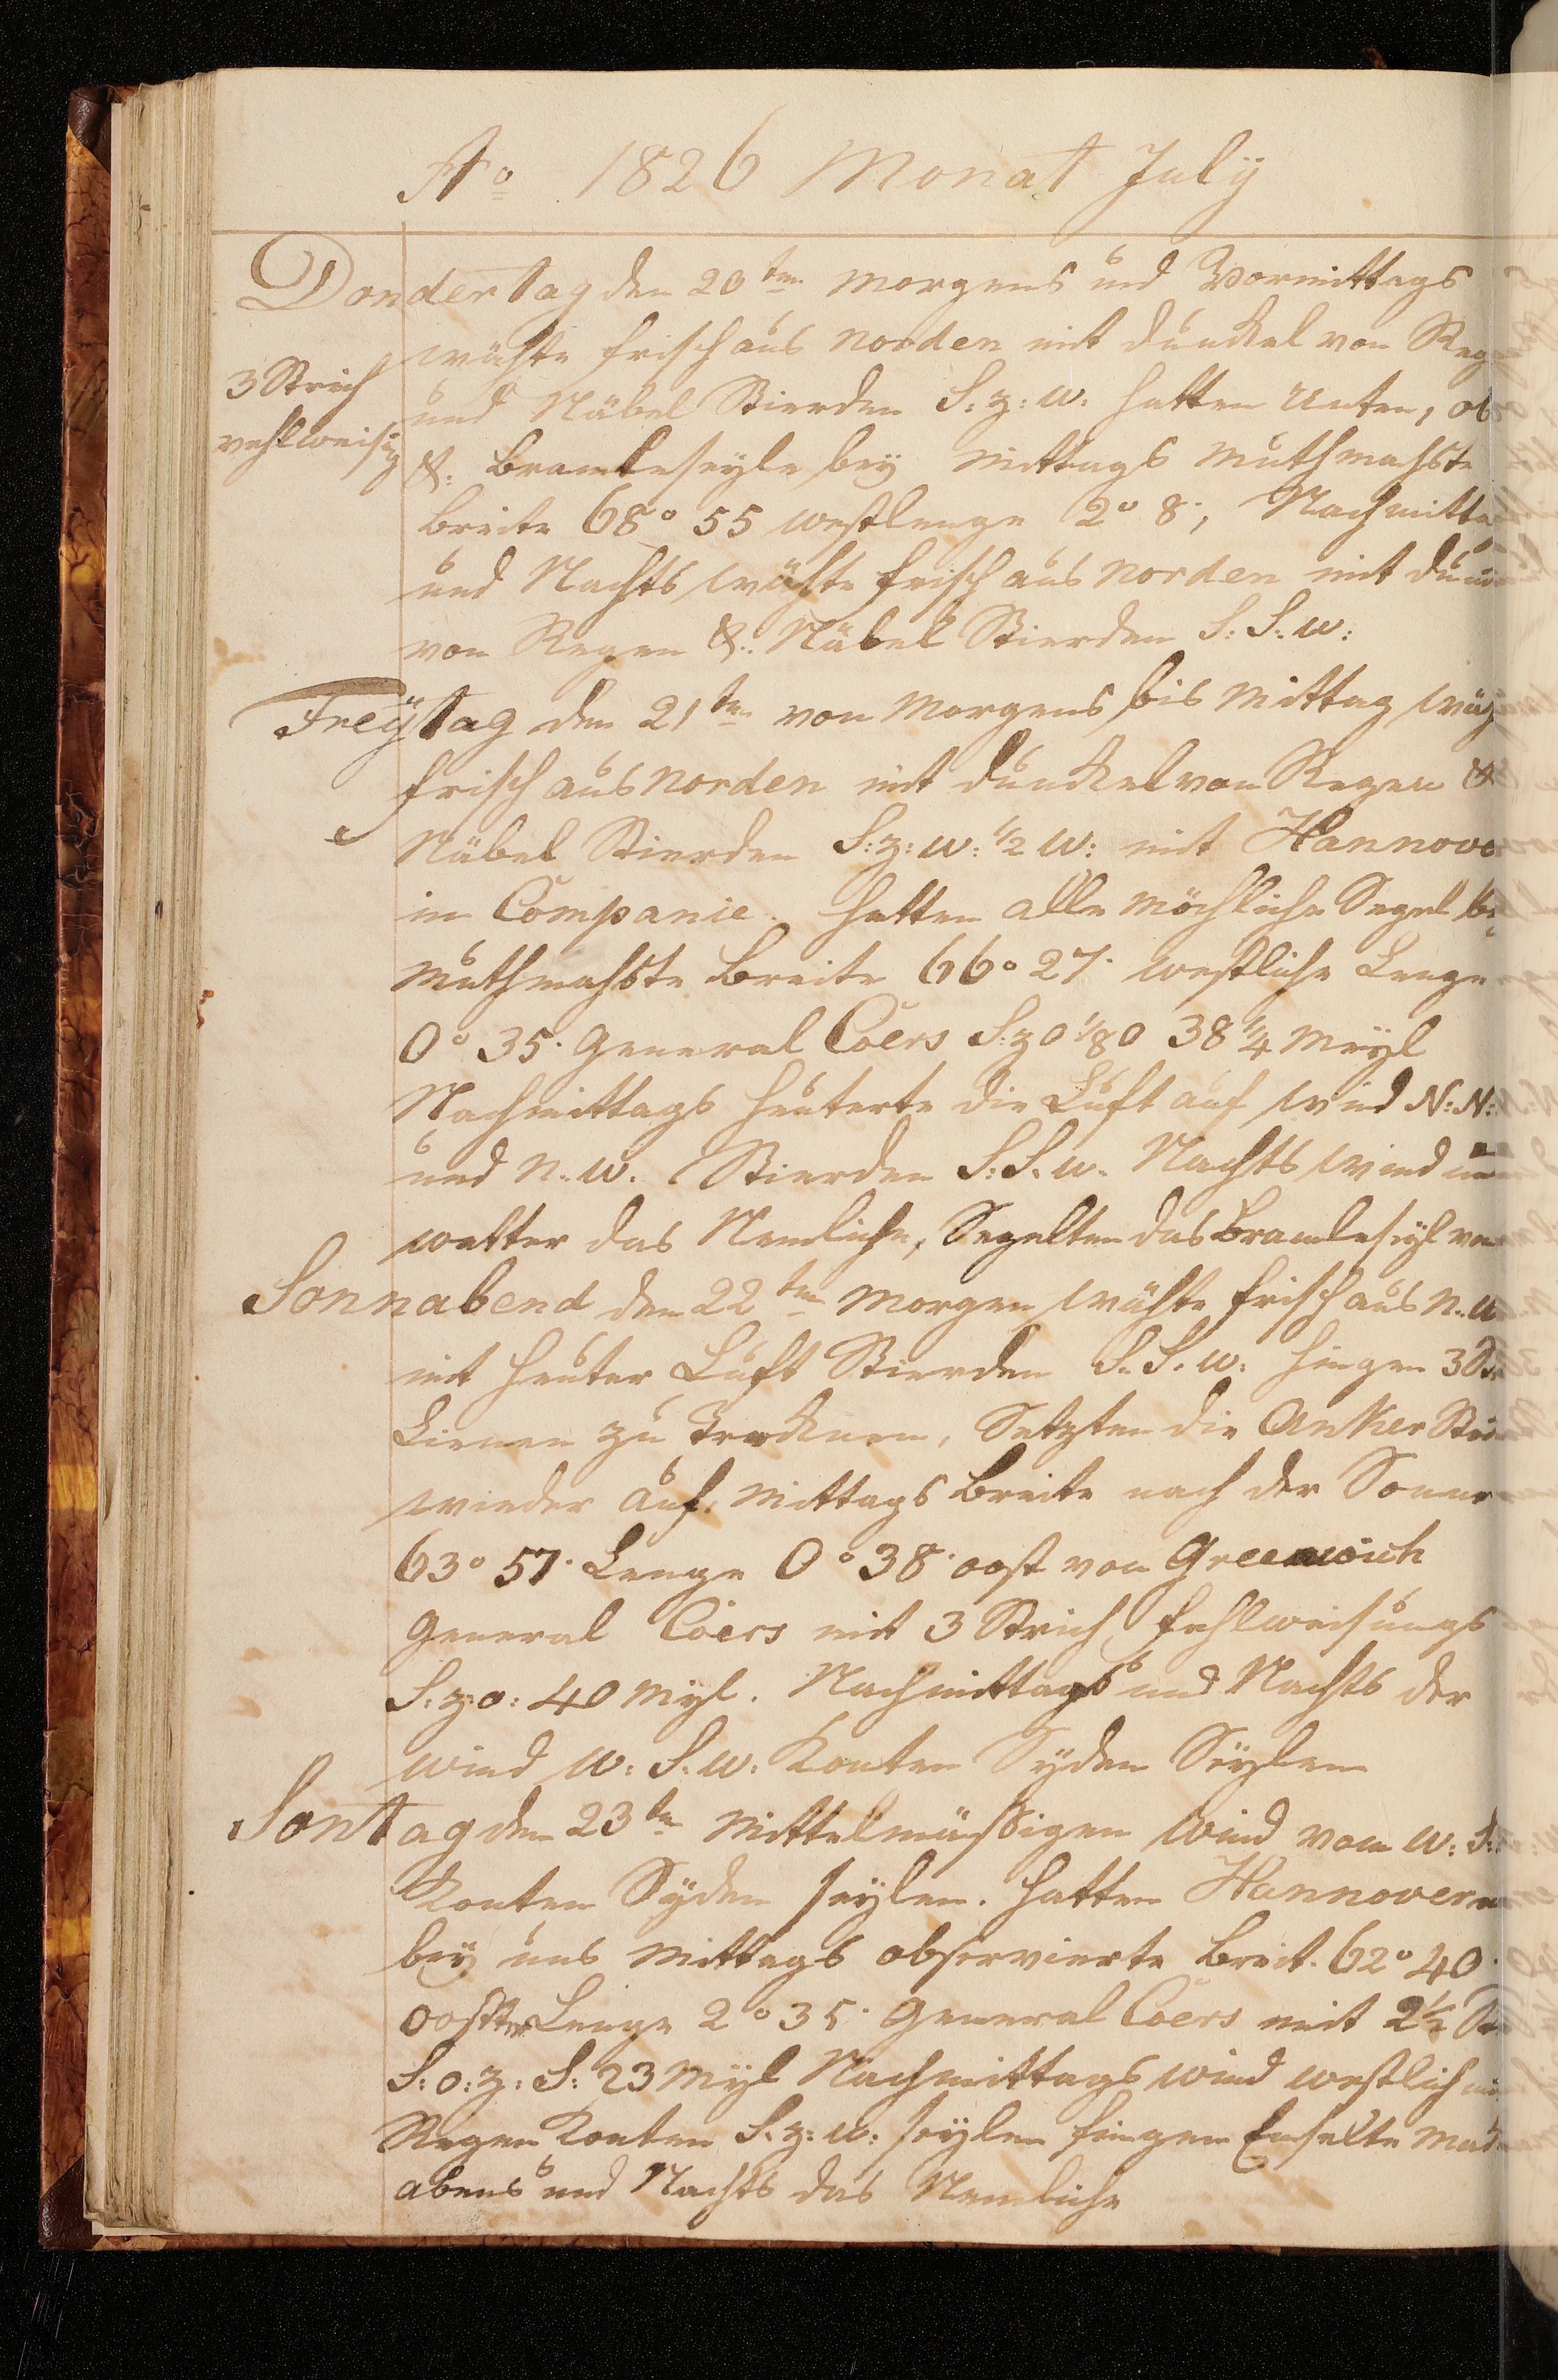 Ao 1826 Monat July
Dondertag den 20ten Morgens und Vormittags
wähte frisch aus Norden mit dunckel von Reg
3 Strich
und Näbel Stierden S: z: W: hatten Unten, ob
vehlweisig
&. Bramleseyle bey Mittags Muthmahste
Breite 68° 55 westlenge 2° 8', Nachmitta
und Nachts wähte frisch aus Norden mit dun
von Regen &. Näbel Stierden S: S: W:
Freÿtag den 21ten von Morgens bis Mittag wäh
frisch aus Norden mit dunckel von Regen &
Näbel Stierden S: z: W: 1/2 W: mit Hannove
in Companie. hatten alle Möchliche Segel be
Muthmahste Breite 66° 27' westliche Lenge
0° 35' General Coers S: z O 1/8 O 38 1/4 Meyl
Nachmittags heuterte die Luft auf wind N: N:
und N. W. Stierden S: S. W. Nachts wind un
wetter das Nemliche, Segelten das Bramleseyl
Sonnabend den 22ten Morgen wähte frisch aus N. W
mit heuter Luft Stierden S. S. W: hingen 3
Lienen zu Trocknen, Setzten die Anker
wieder auf. Mittags Breite nach der Sonne
63° 57' Lenge 0° 38' oost von Greenwich
General Coers mit 3 Strich fehlweisungs
S: z: O: 40 Myl. Nachmittags und Nachts der
wind W: S. W: Konten Syden Seylen
Sontag den 23ten Mittelmässigen wind vom W: S:
Konten Syden seylen. hatten Hannover
beÿ uns Mittags observierte Breit. 62° 40'
ooster Lenge 2° 35' General Coers mit 2 1/2
S: O: z: S: 23 Myl Nachmittags wind westlich
Regen Konten S. z: W: seylen fingen
abens und Nachts das Nemliche